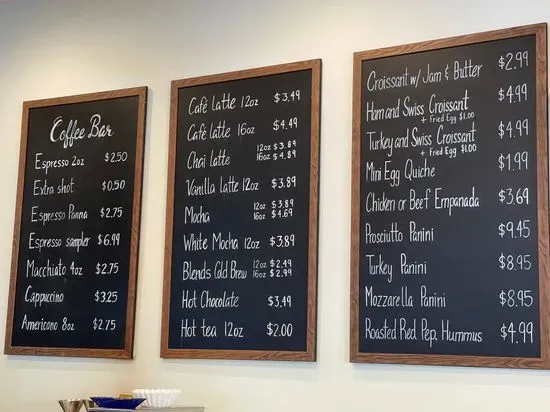 Coffee Bar
Espresso 2oz $2.50
Extra shot $0.50
Espresso Panna $2.75
Espresso sampler $6.99
Macchiato 4oz $2.75
Cappuccino $3.25
Americono 8oz $2.75
Café latte 12oz $3.49
Café latte 16oz $4.49
Chai latte 12oz $3.89
16oz $4.89
Vanilla latte 12oz $3.89
Mocha 12oz $3.89
16oz $4.69
White Mocha 12oz $3.89
Blends Cold Brew 12oz $2.49
16oz $2.99
Hot Chocolate $3.49
Hot tea 12oz $2.00
Croissant w/ Jam & Butter $2.99
Ham and Swiss Croissant $4.99
+ Fried Egg $1.00
Turkey and Swiss Croissant $4.99
+ Fried Egg $1.00
Mini Egg Quiche $1.99
Chicken or Beef Empanada $3.69
Prosciutto Panini $9.45
Turkey Panini $8.95
Mozzarella Panini $8.95
Roasted Red Pep. Hummus $4.99